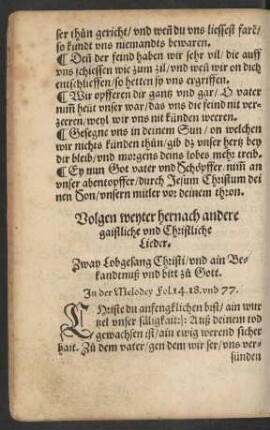 ser thůn gericht/ vnd weñ du vns liessest farẽ/
so kundt vns niemandts bewaren.
¶ Deñ der feind haben wir sehr vil/ die auff
vns schiessen wie zum zil/ vnd weñ wir on dich
entschlieffen/ so hetten sy vns ergriffen.
¶ Wir opfferen dir gantz vnd gar/ O vater
nim̃ heüt vnser war/ das vns die feind nit ver-
zeeren/ weyl wir vns nit künden weeren.
¶ Gesegne vns in deinem Sun/ on welchen
wir nichts künden thůn/ gib dz vnser hertz bey
dir bleib/ vnd morgens deins lobes mehr treib.
¶ Ey nun Got vater vnd Schöpffer/ nim̃ an
vnser abentopffer/ durch Jesum Christum dei
nen Son/ vnsern mitler vor deinem thron.
Volgen weyter hernach andere
gaistliche vnd Christliche
Lieder.
Zway Lobgesang Christi/ vnd ain Be-
kandtnuß vnd bitt zů Gott.
In der Melodey Fol. 14. 18. vnd 77.
CHriste du anfengklichen bist/ ain wur
tzel vnser säligkait:|: Auß deinem tod
gewachsen ist/ ain ewig werend sicher
hait. Zů dem vater/ gen dem wir ser/ vns ver-
sünden